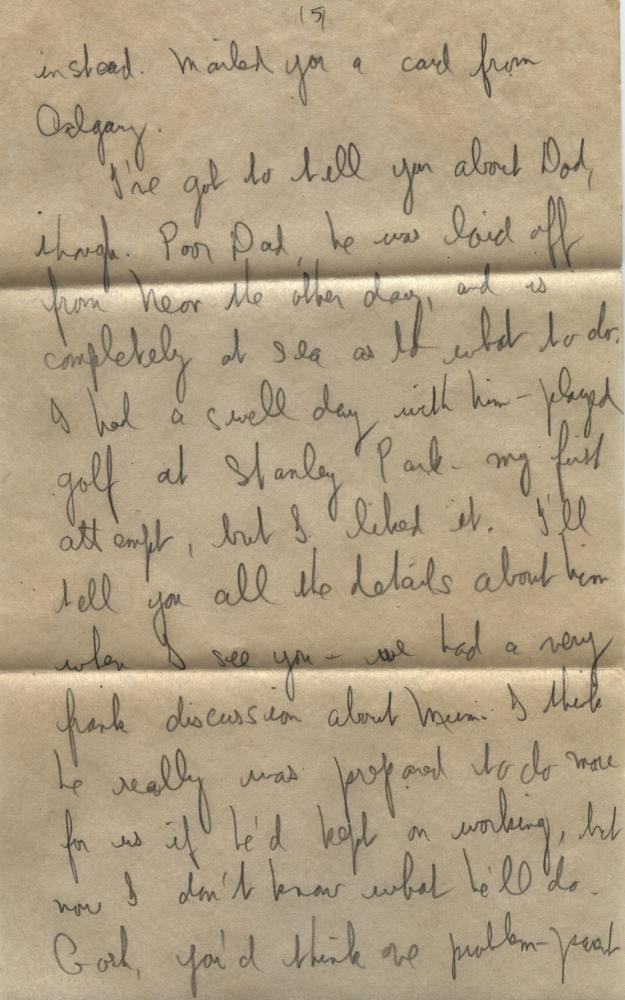 15
instead. Mailed you a card from
Calgary.
I've got to tell you about Dad,
though. Poor Dad, he was laid off
from near the other day, and is
completely at sea as to what to do.
I had a swell day with him - played
golf at Stanley Park - my first
attempt, but I liked it. I'll
tell you all the details about him
when I see you - we had a very
frank discussion about Mum. I think
he really was prepared to do more
for us if he'd kept on working, but
now I don't know what he'll do.
Gosh, you'd think one problem-parent